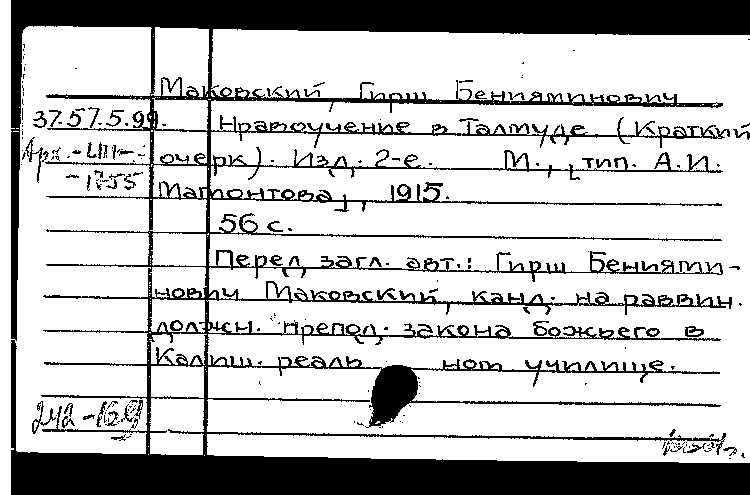 Маковский, Гирш Бенияминович
37.57.5.99. Нравоучение в Талмуде. (Краткий
очерк). Изд. 2-е. М., [тип. А.И.
Мамонтова], 1915.
56 с.
Перед загл. авт.: Гирш Бениями-
нович Маковский, канд. на раввин.
должн. препод. закона божьего в
Калиш. реаль ном училище.
242-169